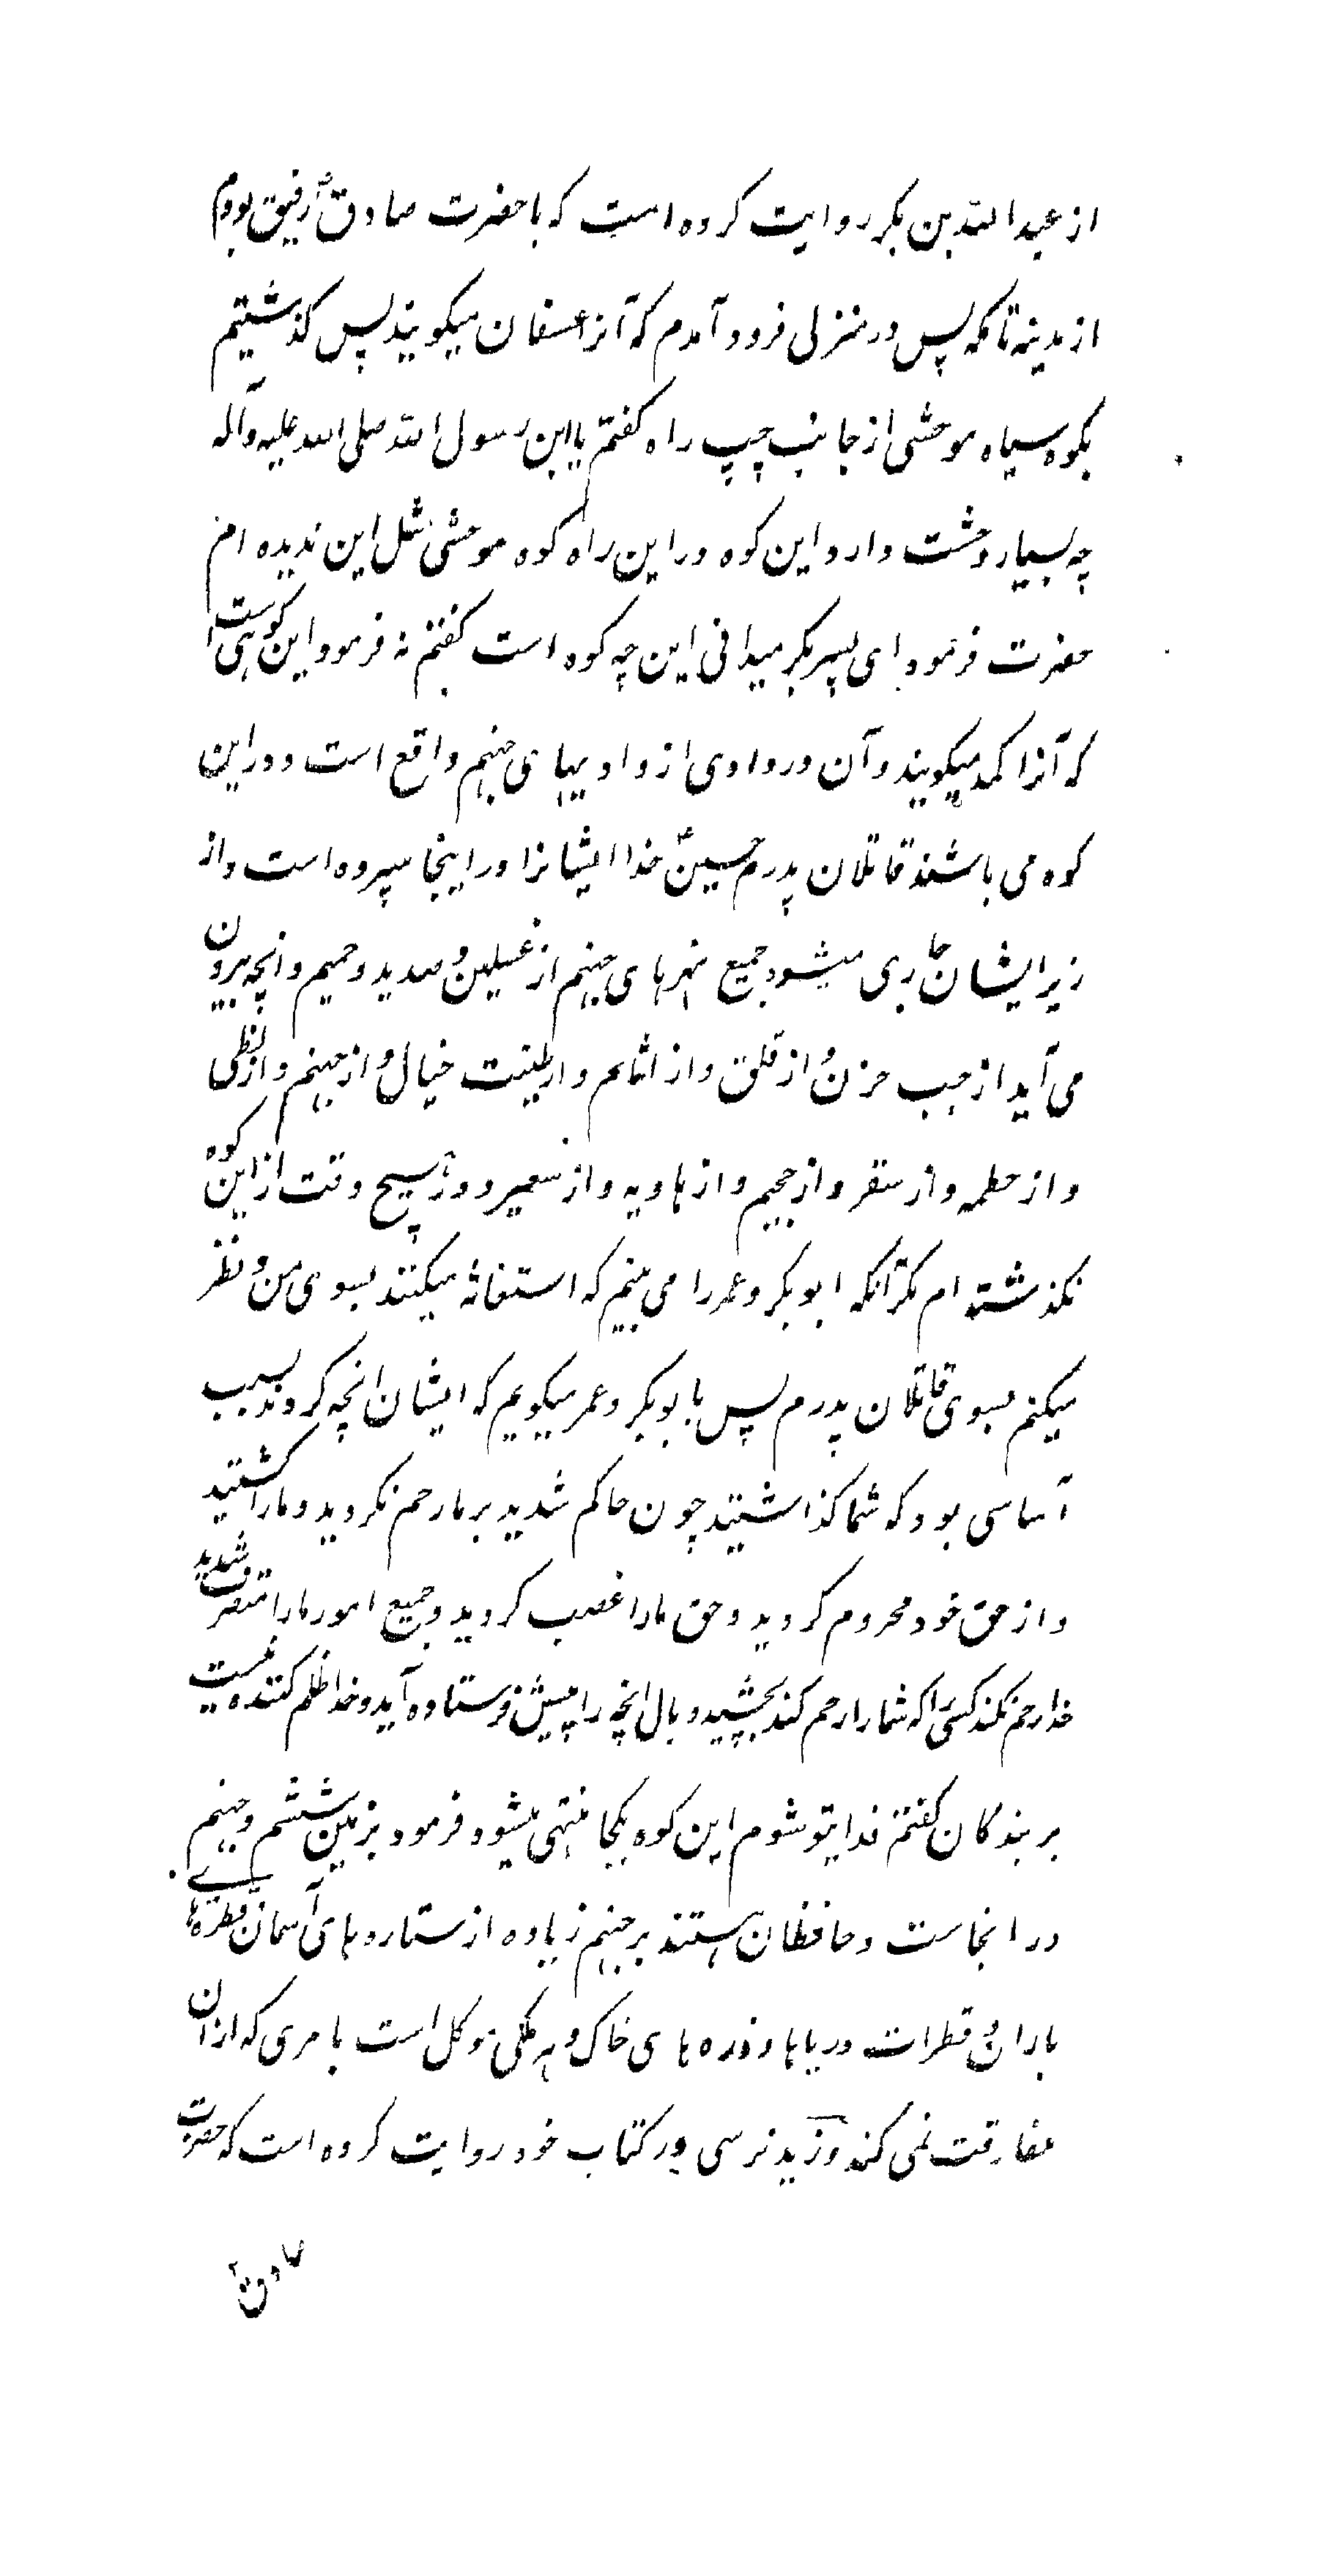 از عبد الله بن بکر روایت کرده است که با حضرت صادقؑ رفیق بودم
از مدینه تا مکه پس در منزلی فرود آمدم که آنرا عسفان میکویند پس کذشتیم
بکوه سیاه موحشی از جانب چپ راه کفتم یا ابن رسول الله صلی الله علیه وآله
چه بسیار وحشت دارد این کوه در این راه کوه موحشی مثل این ندیده ام
حضرت فرمود ای پسر بکر میدانی این چه کوه است کفتم نه فرمود این کوهی است
که آنرا کمد میکویند و آن در وادی از وادیهای جهنم واقع است و در این
کوه می باشند قاتلان پدرم حسینؑ خدا ایشانرا در اینجا سپرده است و از
زیر ایشان جاری میشود جمیع نهرهای جهنم از غسلین و صدید و حمیم و انچه بیرون
می آید از جب حزن و از فلق و از اثام و از طینت خبال و از جهنم و از لظی
و از حطمه و از سقر و از جحیم و از هاویه و از سعیر و در هیچ وقت از این کوه
نکذشته ام مکر آنکه ابو بکر و عمر را می بینم که استغاثه میکنند بسوی من و نظر
میکنم بسوی قاتلان پدرم پس با بو بکر و عمر میکویم که ایشان انچه کردند بسبب
آساسی بود که شما کذاشتید چون حاکم شدید بر ما رحم نکردید و ما را کشتید
و از حق خود محروم کردید و حق ما را غصب کردید و جمیع امور ما را متصرف شدید
خدا رحم نکند کسی را که شما را رحم کند بچشید وبال انچه را پیش فرستاده آید و خدا ظلم کننده نیست
بر بندکان کفتم فدایتو شوم این کوه بکجا منتهی میشود فرمود بزمین ششم و جهنم
در انجاست و حافظان هستند بر جهنم زیاده از ستاره های آسمان و قطره های
باران و قطرات دریاها و ذره های خاک و هر ملکی موکل است بامری که از ان
مفارقت نمی کند و زید نرسی در کتاب خود روایت کرده است که حضرت
صادقؑ